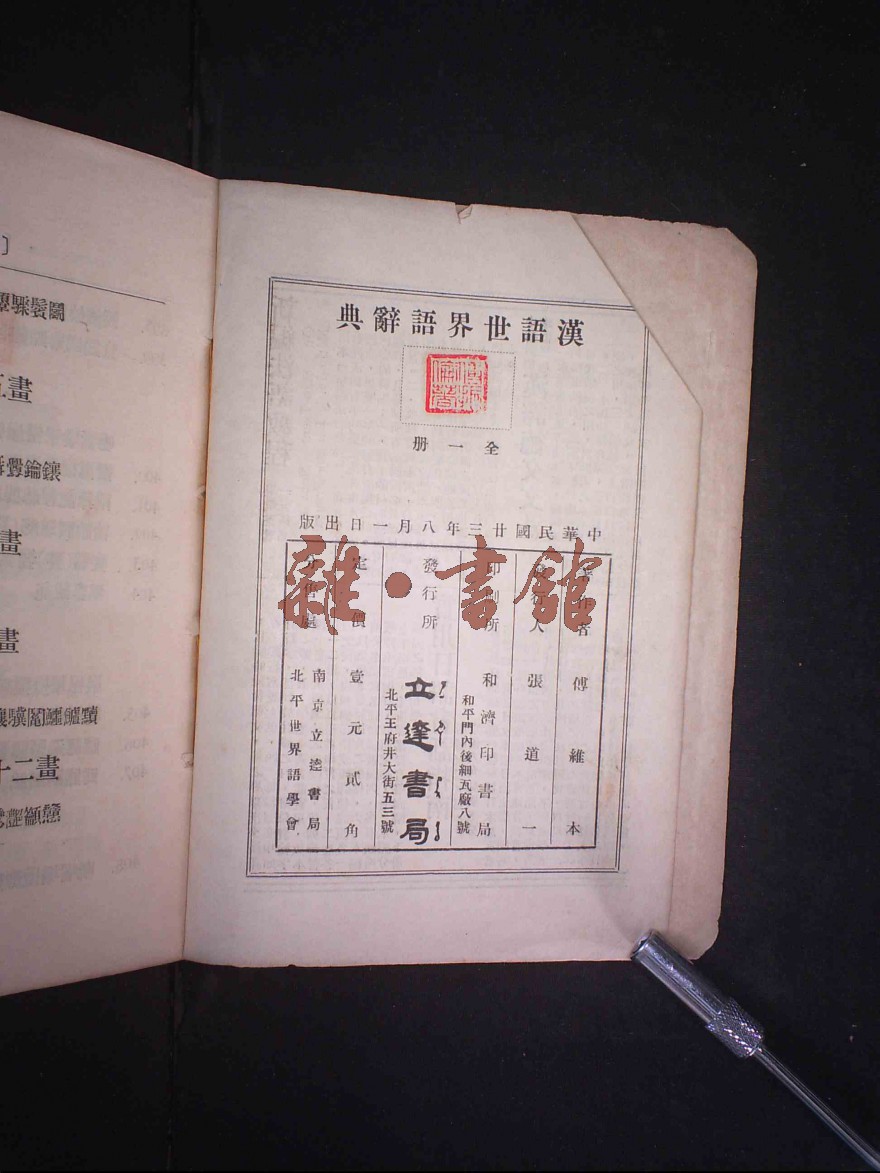 漢語世界語辭典
全一册
中華民國廿三年八月一日出版
著作者 傅維本
發行人 張道一
印刷所 和濟印書局
和平門內後細瓦廠八號
發行所 立達書局
北平王府井大街五三號
定價 壹元貳角
分售處 南京立達書局
北平世界語學會
雜·書館
畫
畫
畫
十二畫